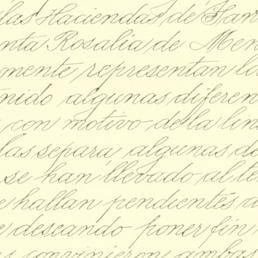 las Haciendas de San
nta Rosalia de Men
mente representan lo
nido algunas diferen
con motivo de la lin
las separa algunas d
se han llevado al te
hallan pendientes
deseando poner fin
convinieron ambas